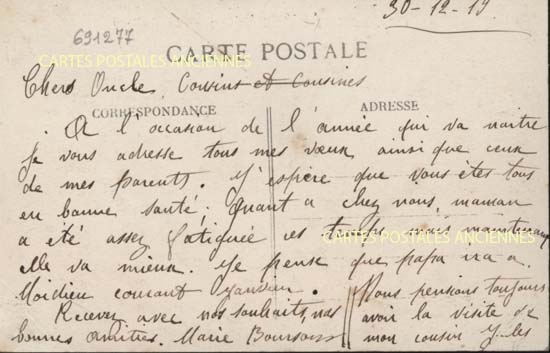 30-12-19
691277
CARTES POSTALES ANCIENNES
CARTE POSTALE
Chers Oncle, Cousins et Cousines
CORRESPONDANCE
ADRESSE
A l'occasion de l'année qui va naitre
Je vous adresse tous mes vœux ainsi que ceux
de mes parents. J'espère que vous êtes tous
en bonne santé; Quant a chez nous, maman
a été assez fatiguée ces mais maintenant
CARTES POSTALES ANCIENNES
elle va mieux. Je pense que papa ira a
Moidieu courant Janvier.
Recevez avec nos souhaits, nos
bonnes amitiés. Marie
Nous pensions toujours
avoir la visite de
mon cousin